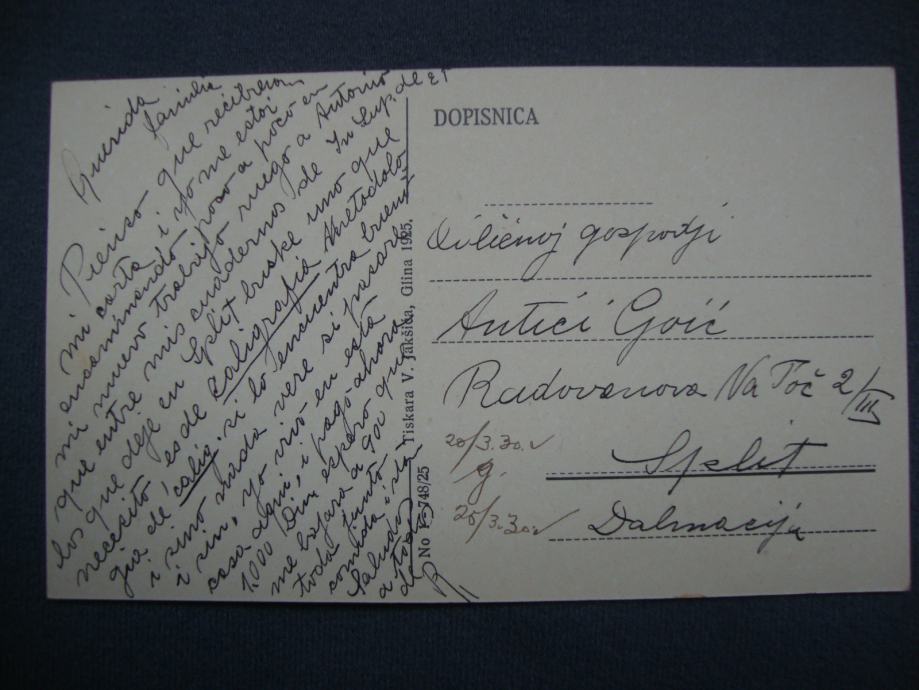 Querida
familia
Pienso que recibieron
mi carta i yo me estoi
encaminando poco a poco en
mi nuevo trabajo ruego a Antonio
que entre mis cuadernos de
los que dejé en Split buske uno que
necesito es de caligrafia
gia de calig. si lo encuentra bueno
i sino nada vere si pasare
i sin, yo vivo en esta
casa aqui, i pago ahora
1.000 Din espero que
me bajara a 900
todo junto
comida i
Saludos
a todos
de R
DOPISNICA
gospodji
Antići Goić
Radovanova Na Toč 2/III
Split
Dalmacija
20/3.30.
g.
25/3.30.
No 748/25 Tiskara V. Jakšida, Glina 1925.